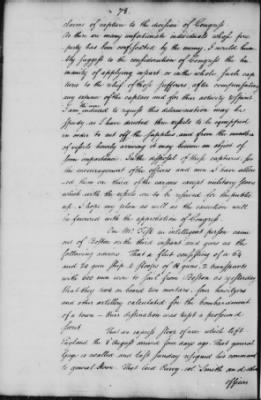 78.
claims of capture to the decision of Congress
As there are many unfortunate individuals whose pro
perty has been confiscated by the enemy, I would hum
bly suggest to the consideration of Congress the hu
manity of applying in part or in the whole such cap
tures to the relief of those sufferers after compensating
any expense of the captors and for their activity & spirit
I am the more induced to request this determination may be
speedy as I have directed three vessels to be equipped
in order to cut off the supplies, and from the number
of vessels hourly arriving it may become an object of
some importance. In the disposal of these captures for
the encouragement of the officers and men I have allow
ed them one third of the cargoes except military stores
which with the vessels are to be reserved for the public
use. I hope my plan as well as the execution will
be favored with the approbation of Congress.
One Mr. Fisk an intelligent person came
out of Boston on the third instant and gives us the
following advices That a fleet consisting of a 64
and 20 gun ship 2 sloops of 18 guns, 2 transports
with 600 men were to sail from Boston as yesterday
that they took on board two mortars, four howitzers
and other artillery calculated for the bombardment
of a town — their destination was kept a profound
secret
That an express sloop of war which left
England the 8 August arrived four days ago. That general
Gage is recalled and last sunday resigned his command
to general Howe. That Lord Percy col. Smith and other
officers